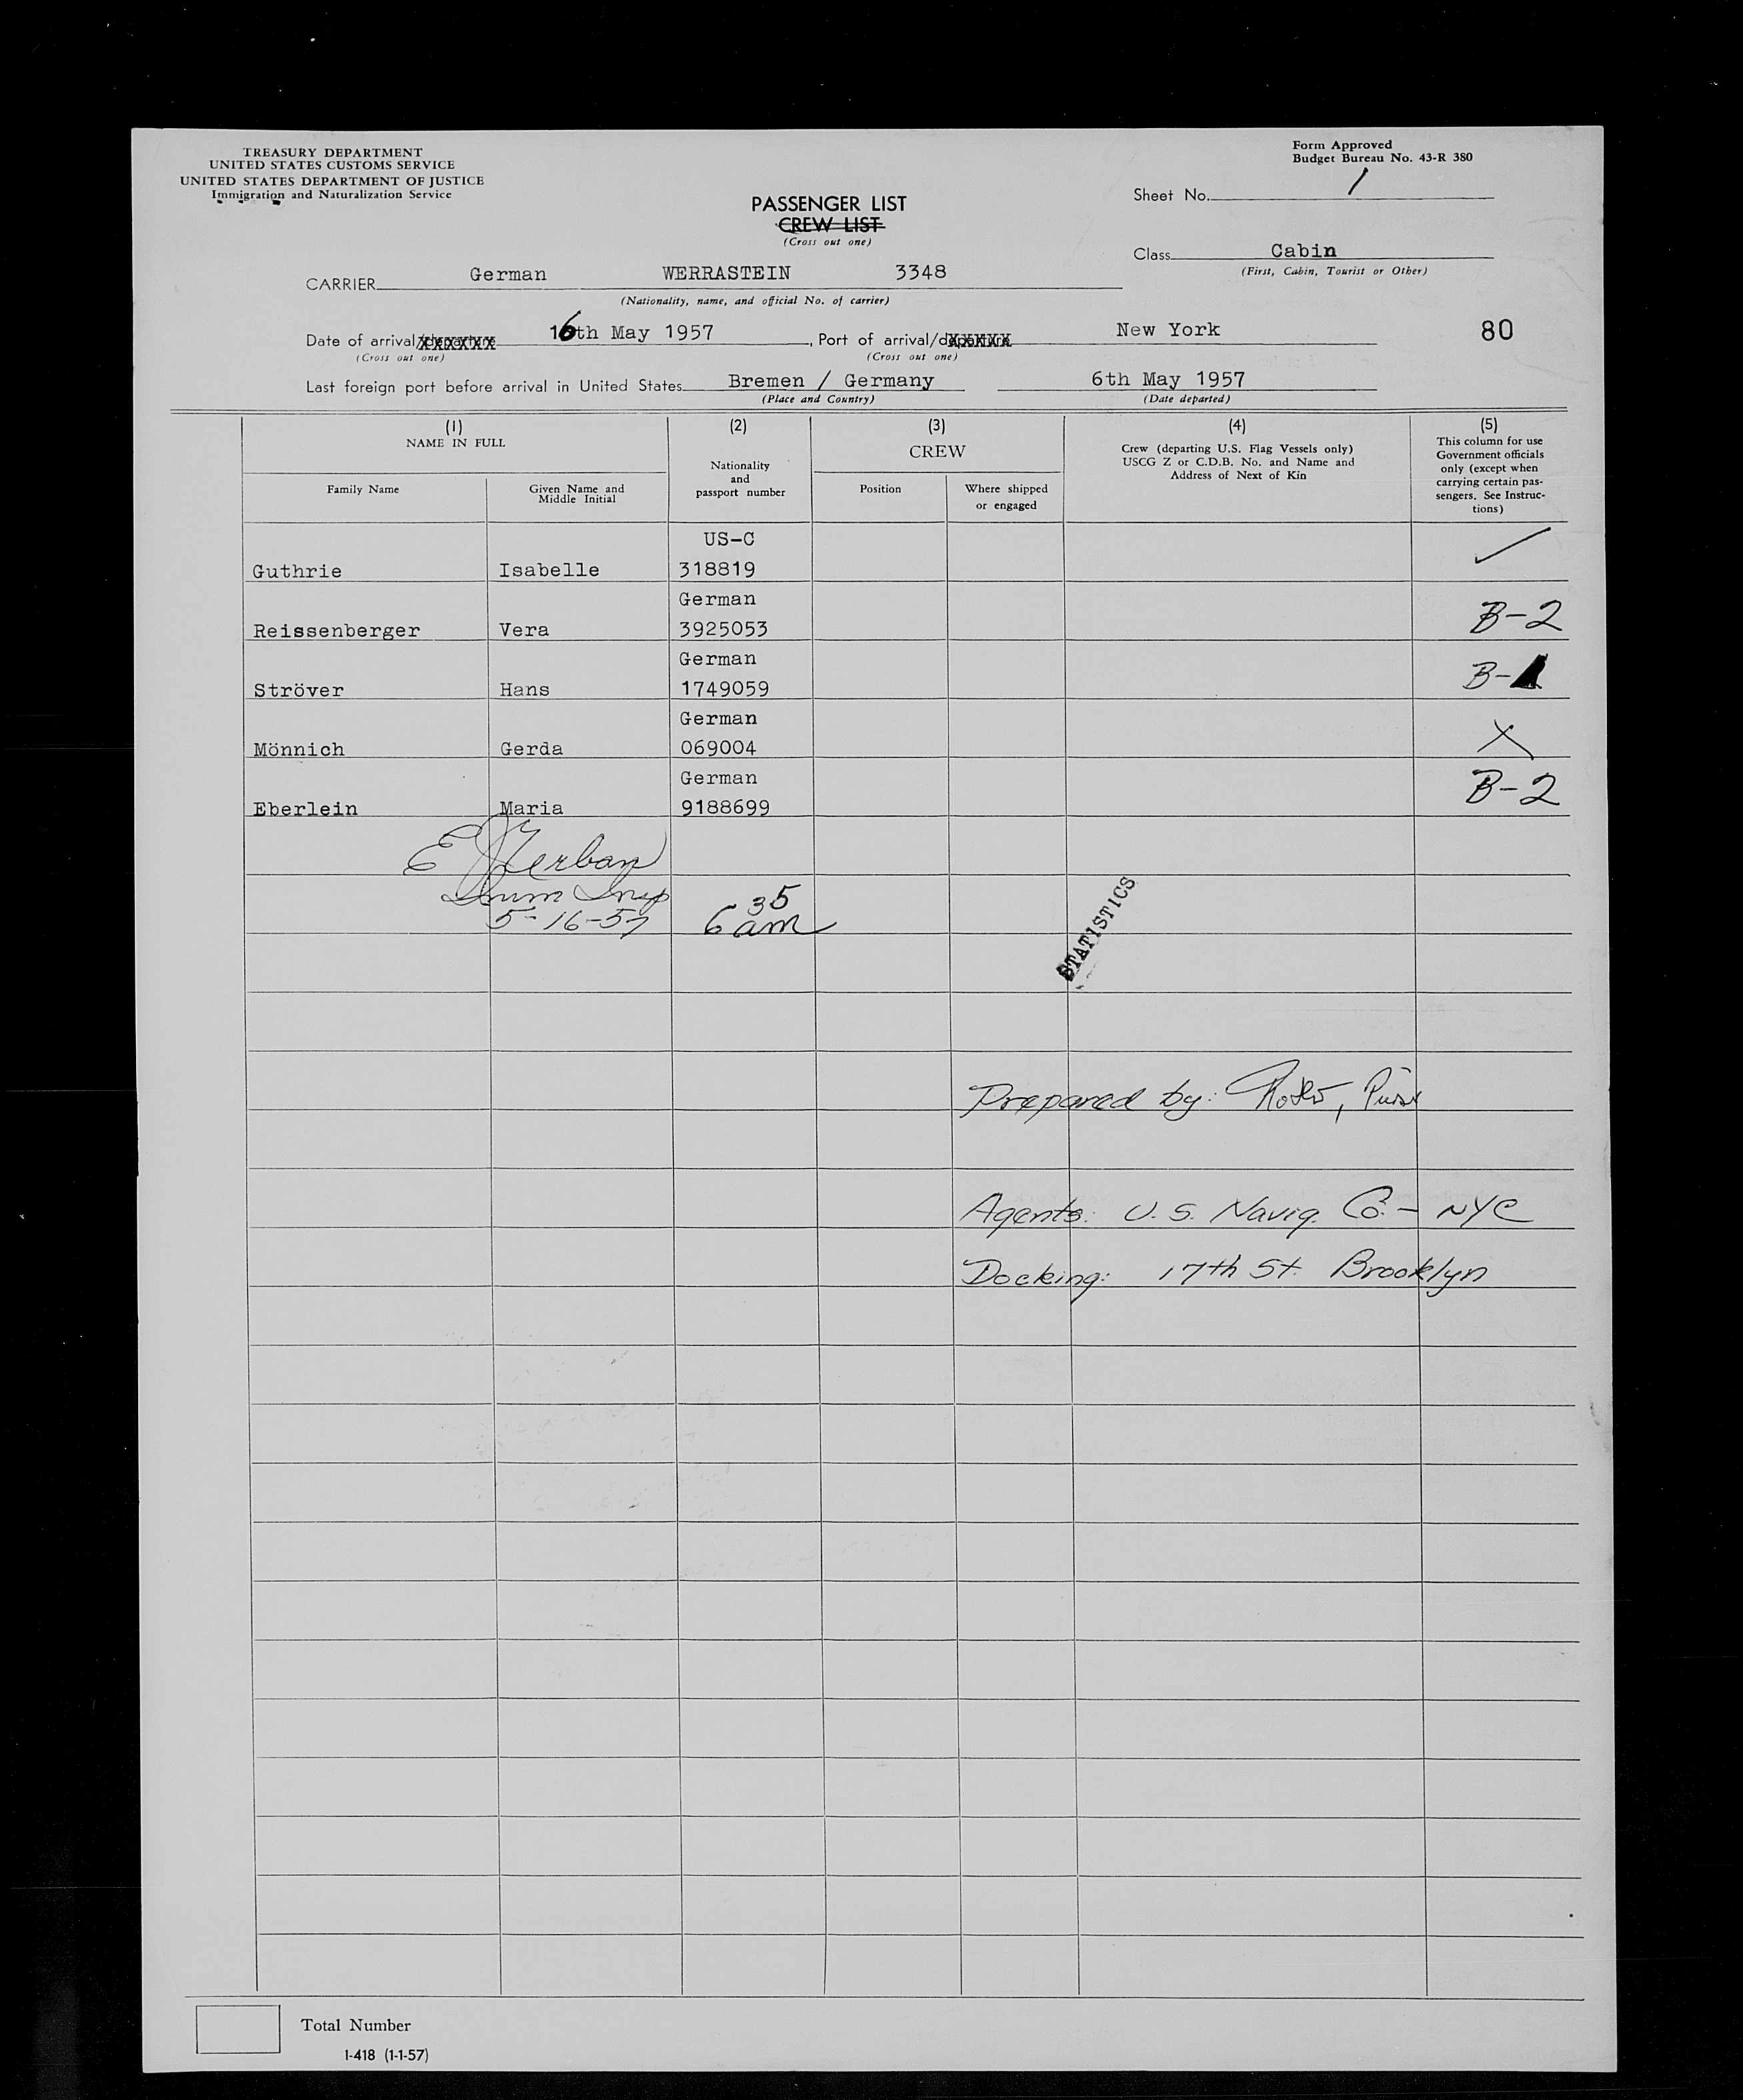 TREASURY DEPARTMENT
UNITED STATES CUSTOMS SERVICE
UNITED STATES DEPARTMENT OF JUSTICE
Immigration and Naturalization Service
Form Approved
Budget Bureau No. 43-R 380
Sheet No. 1
PASSENGER LIST
CREW LIST
(Cross out one)
Class Cabin
(First, Cabin, Tourist or Other)
CARRIER German WERRASTEIN 3348
(Nationality, name, and official No. of carrier)
Date of arrival/departure 16th May 1957, Port of arrival/departure New York 80
(Cross out one) (Cross out one)
Last foreign port before arrival in United States Bremen / Germany 6th May 1957
(Place and Country) (Date departed)
(1) (2) (3) (4) (5)
NAME IN FULL
Family Name
Given Name and
Middle Initial
Nationality
and
passport number
CREW
Position
Where shipped
or engaged
Crew (departing U.S. Flag Vessels only)
USCG Z or C.D.B. No. and Name and
Address of Next of Kin
This column for use
Government officials
only (except when
carrying certain pas-
sengers. See Instruc-
tions)
US-C
Guthrie Isabelle 318819
German
Reissenberger Vera 3925053 B-2
German
Ströver Hans 1749059 B-
German
Mönnich Gerda 069004 X
German
Eberlein Maria 9188699 B-2
E
Imm Insp
5-16-57 6 35 am
STATISTICS
Prepared by:
Agents: U.S. Navig. Co. - NYC
Docking: 17th St. Brooklyn
Total Number
I-418 (1-1-57)